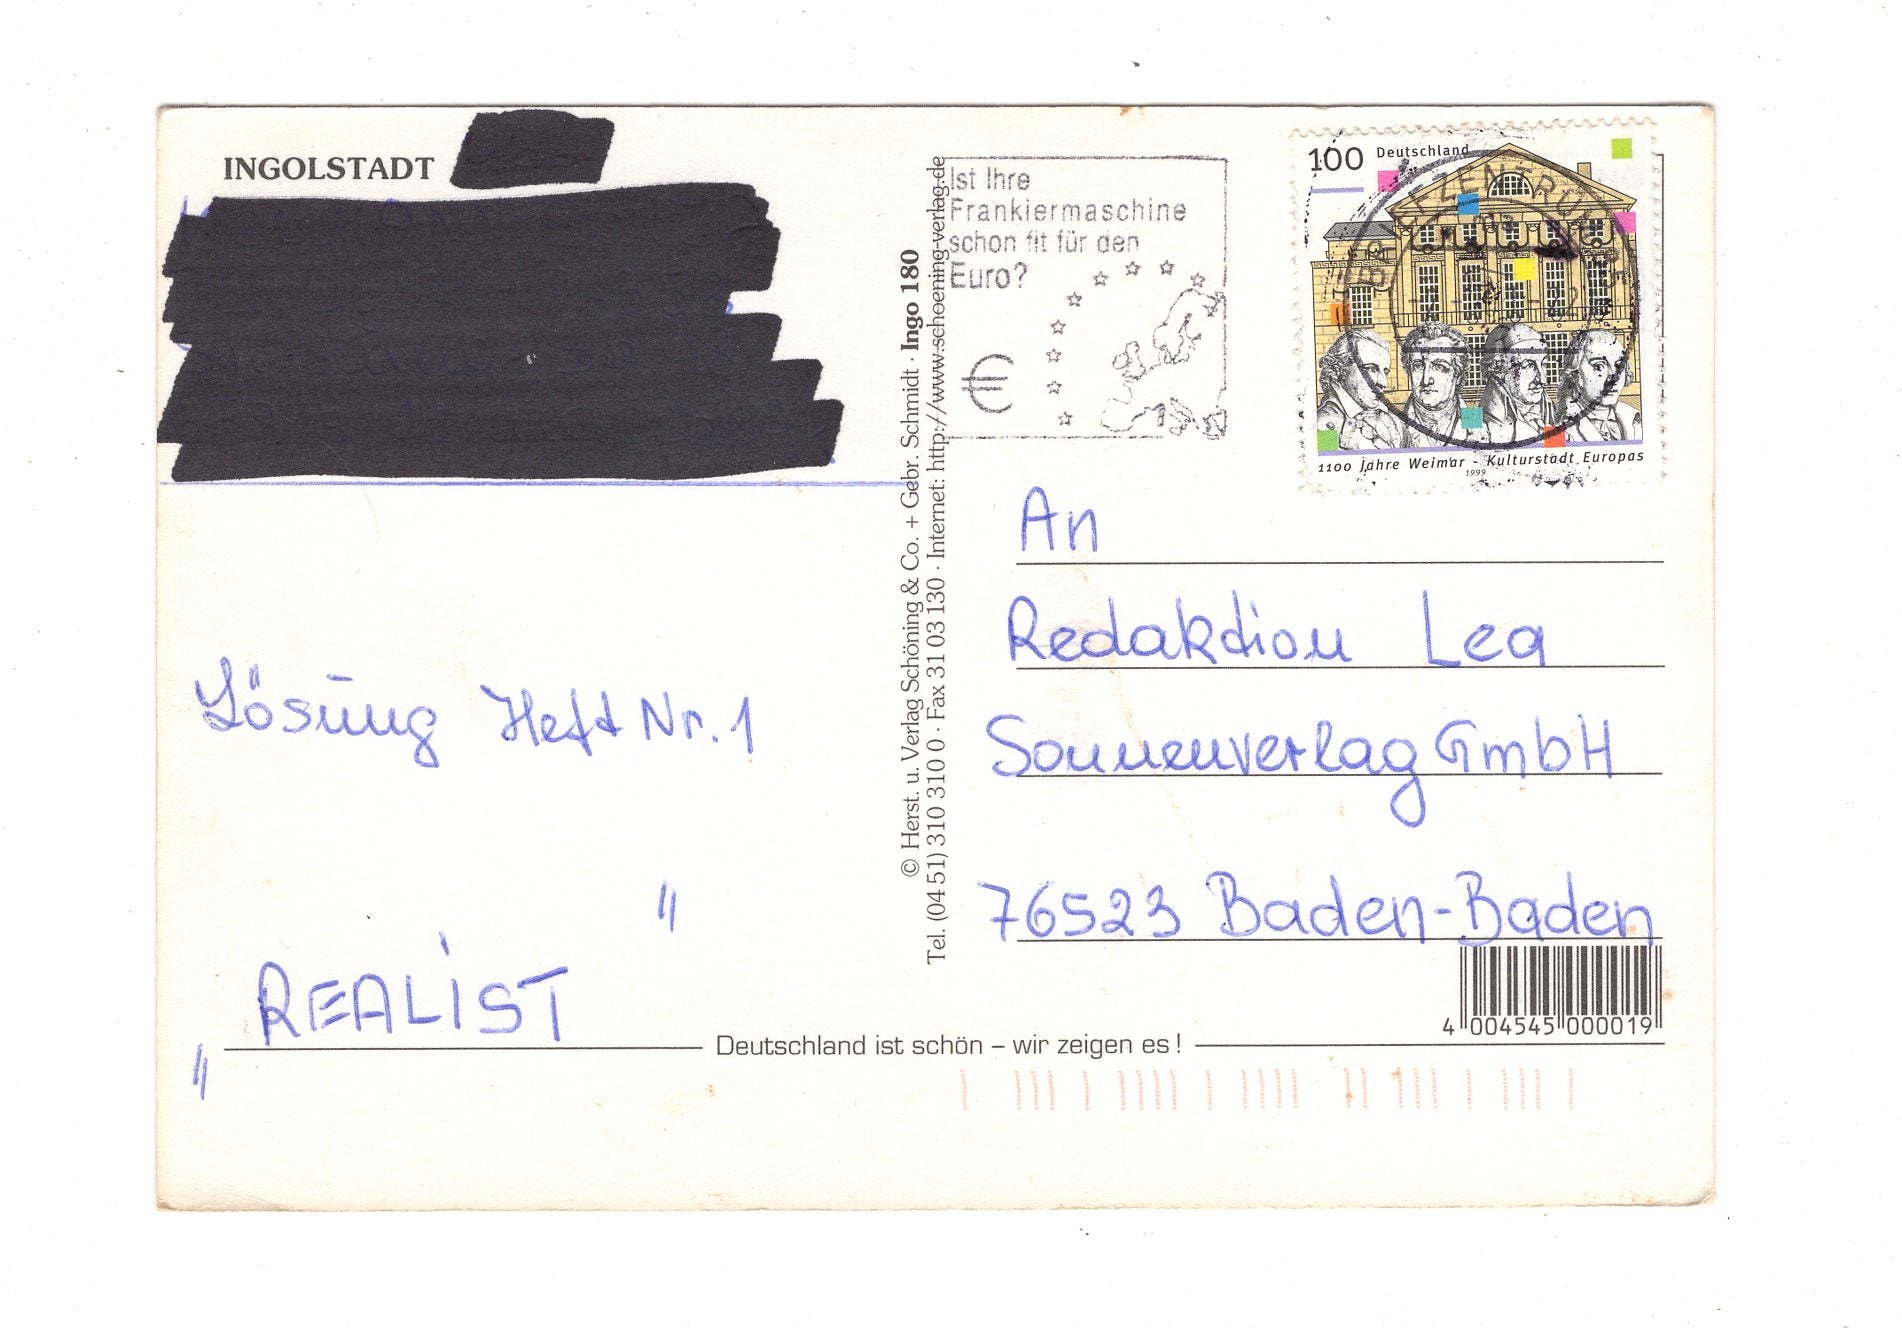 INGOLSTADT
Lösung Heft Nr. 1
„REALiST"
© Herst. u. Verlag Schöning & Co. + Gebr. Schmidt · Ingo 180
Tel. (04 51) 310 310 0 · Fax 31 03 130 · Internet: http://www.schoening-verlag.de
Ist Ihre
Frankiermaschine
schon fit für den
Euro?
€
100 Deutschland
BRIEFZENTRUM
1100 Jahre Weimar - Kulturstadt Europas
1999
An
Redaktion Lea
Sonnenverlag GmbH
76523 Baden-Baden
4 004545 000019
Deutschland ist schön – wir zeigen es !